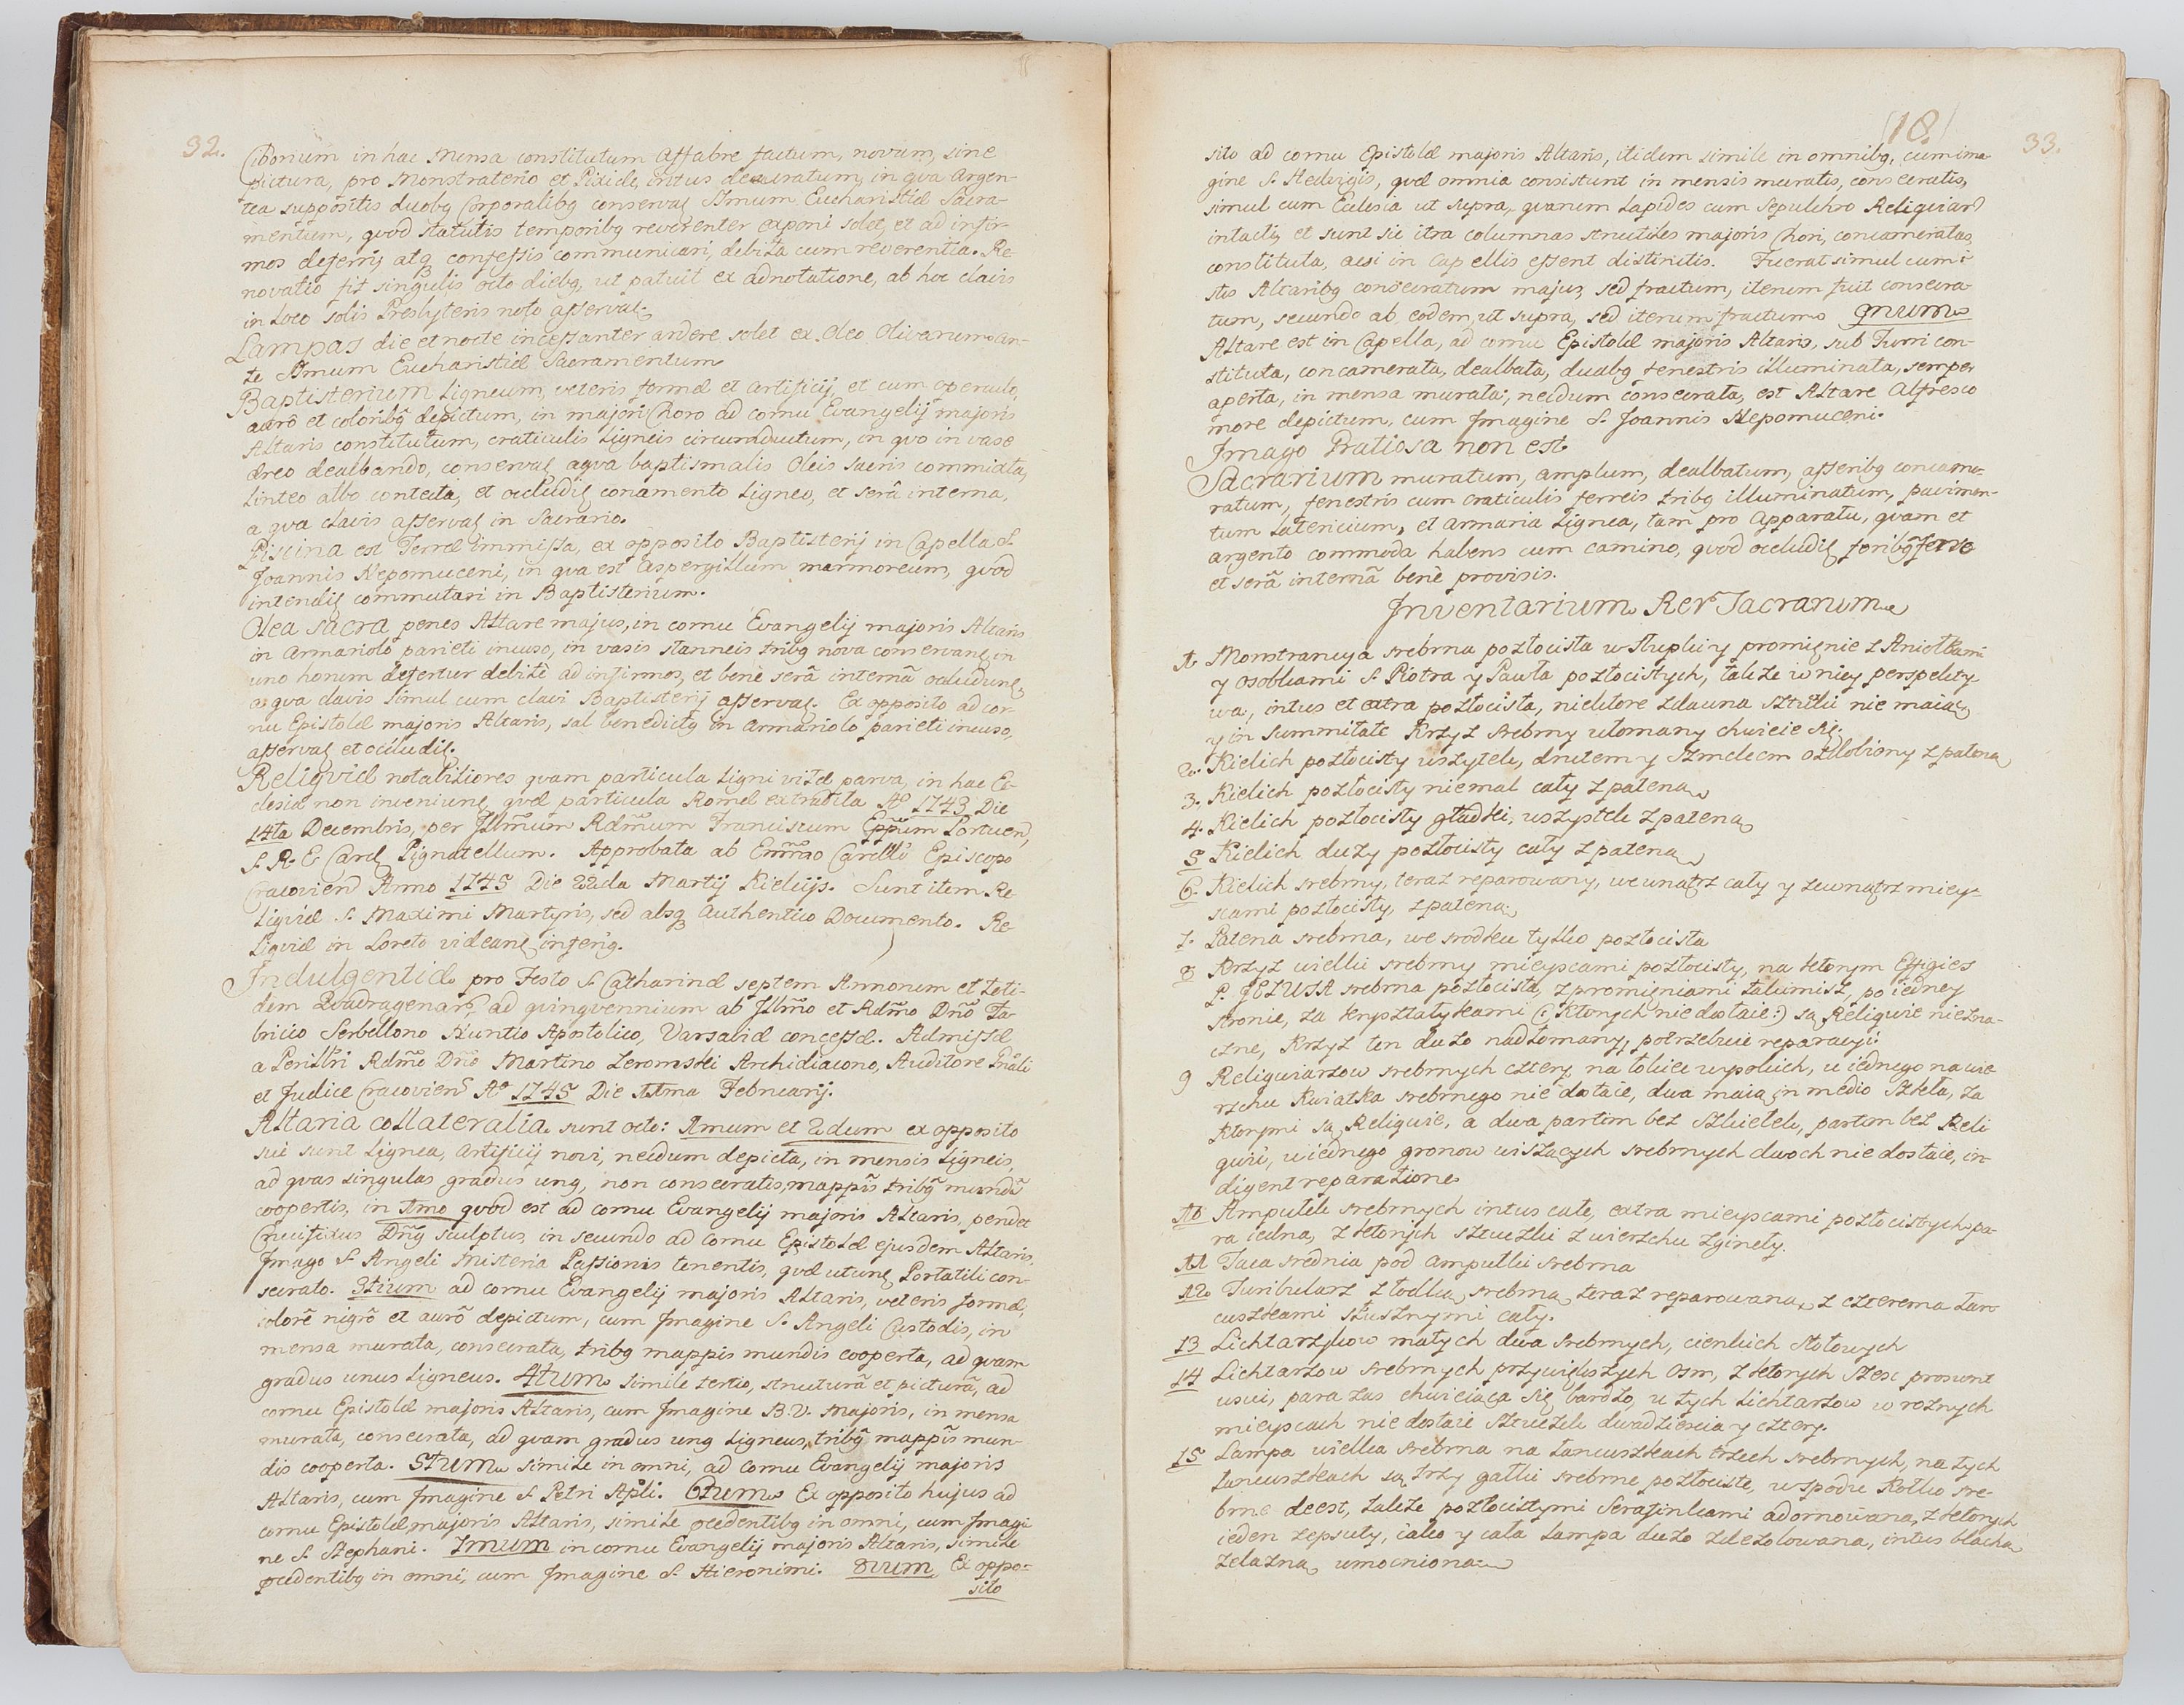 32.
Ciborium in hac Mensa constitutum affabre factum, novum, sine
pictura, pro Monstraterio et Pixide, intus deauratum, in qva argen-
tea suppositis duobq Corporalibq conservaꝶ SSmum Eucharistiæ Sacra-
mentum, qvod statutis temporibq reverenter exponi solet, et ad infir-
mos deferri, atq confessis communicari, debita cum reverentia. Re-
novatio fit singulis octo diebq, ut patuit ex adnotatione, ab hoc clavis
in Loco solis Presbyteris noto asservaꝶ
Lampas die et nocte incessanter ardere solet ex Oleo Olivarum an-
te SSmum Eucharistiæ Sacramentum
Baptisterium Ligneum, veteris formæ et artificij, et cum operculo,
aurô et coloribq depictum, in majori Choro ad cornu Evangelij majoris
Altaris constitutum, craticulis Ligneis circumductum, in qvo in vase
æreo dealbando, conservaꝶ aqva baptismalis Oleis sacris commixta,
Linteo albo contecta, et occludiꝶ conamento Ligneo, et serâ interna,
a qva clavis asservaꝶ in Sacrario.
Piscina est Terræ immissa, ex opposito Baptisterij in Capella S.
Joannis Nepomuceni, in qva est aspergillum marmoreum, qvod
intendiꝶ commutari in Baptisterium.
Olea sacra penes Altare majus, in cornu Evangelij majoris Altaris
in Armariolo parieti incuso, in vasis stanneis tribq nova conservanꝶ, in
uno horum defertur debitè ad infirmos, et benè serâ internâ occludunꝶ,
a qva clavis simul cum clavi Baptisterij asservaꝶ. Ex opposito ad cor-
nu Epistolæ majoris Altaris, sal benedictq in Armariolo parieti incuso,
asservaꝶ et occludiꝶ.
Reliqviæ notabiliores qvam particula Ligni vitæ parva, in hac Ec-
clesia non inveniunꝶ, qvæ particula Romæ extradita Aō 1743 Die
14ta Decembris, per Jllm̃um Rdm̃um Franciscum Epp̃um Portuen,
S. R. E. Card. Pignatellum. Approbata ab Em̃mo Cardlī Episcopo
Cracovien Anno 1745 Die 22da Martij Kielcijs. Sunt item Re-
Liqviæ S. Maximi Martyris, sed absq Authentico Documento. Re-
Liqviæ in Loreto videanꝶ inferiq.
Indulgentiæ pro Festo S. Catharinæ septem Annorum et toti-
dem Qvadragenar, ad qvinqvennium ab Jllm̃o et Rdm̃o Dnō Fa-
bricio Serbellono Nuntio Apostolico, Varsaviæ concessæ. Admissæ
a Perillri Rdm̃o Dnō Martino Zeromski Archidiacono, Auditore Gnāli
et Judice Cracovien Aō 1745 Die 11ma Februarij.
Altaria collateralia sunt octo: 1mum et 2dum ex opposito
sui sunt Lignea, artificij novi, necdum depicta, in mensis Ligneis,
ad qvas singulas gradus unq, non consecratis, mappis tribq mundis
coopertis, in 1mo qvod est ad cornu Evangelij majoris Altaris, pendet
Crucifixus Dn̄q sculptus, in secundo ad cornu Epistolæ ejusdem Altaris,
Jmago S. Angeli Misteria Passionis tenentis, qvæ utunꝶ Portatili con-
secrato. 3tium ad cornu Evangelij majoris Altaris, veteris formæ,
colorê nigrô et aurô depictum, cum Jmagine S. Angeli Custodis, in
mensa murata, consecrata, tribq mappis mundis cooperta, ad qvam
gradus unus Ligneus. 4tum simile tertio, structurâ et picturâ, ad
cornu Epistolæ majoris Altaris, cum Jmagine B. V. Majoris, in mensa
murata, consecrata, ad qvam gradus unq Ligneus, tribq mappis mun-
dis cooperta. 5tum simile in omni, ad cornu Evangelij majoris
Altaris, cum Jmagine S. Petri Apli. 6tum Ex opposito hujus ad
cornu Epistolæ majoris Altaris, simile præcedentibq in omni, cum Jmagi-
ne S. Stephani. 7mum in cornu Evangelij majoris Altaris, simile
præcedentibq in omni, cum Jmagine S. Hieronimi. 8vum Ex oppo-
sito
(18.)
33.
sito ad cornu Epistolæ majoris Altaris, itidem simile in omnibq, cum ima-
gine S. Hedvigis, qvæ omnia consistunt in mensis muratis, consecratis,
simul cum Eclesia ut supra, qvarum Lapides cum Sepulchro Reliqviar
intacti, et sunt sic itra columnas structiles majoris Chori, concameratas
constituta, acsi in Capellis essent distinctis. Fuerat simul cum i-
stis Altaribq consecratum majus, sed fractum, iterum fuit consecra-
tum, secundo ab eodem, ut supra, sed iterum fractum. 9num
Altare est in Capella, ad cornu Epistolæ majoris Altaris, sub Turri con-
stituta, concamerata, dealbata, duabq fenestris illuminata, semper
aperta, in mensa murata, necdum consecrata, est Altare alfresco
more depictum, cum Jmagine S. Joannis Nepomuceni.
Jmago Gratiosa non est.
Sacrarium muratum, amplum, dealbatum, asseribq concame-
ratum, fenestris cum craticulis ferreis tribq illuminatum, pavimen-
tum Latericium, et armaria Lignea, tam pro apparatu, qvam et
argento commoda habens cum camino, qvod occludiꝶ foribq ferre
et serâ internâ benè provisis.
Jnventarium Rer Sacrarum
1. Monstrancya srebrna pozłocista w słupku y promięnie z Aniołkami
y osobkami S. Piotra y Pawła pozłocistych, także w niey perspekty-
wa, intus et extra pozłocista, niektore zdawna sztuki nie maiąc,
y in summitate Krzyż srebrny ułomany chwieie się.
2. Kielich pozłocisty wszytek, drutem y Szmelcem ozdobiony z pateną
3. Kielich pozłocisty niemal cały z pateną
4. Kielich pozłocisty gładki, wszystek z pateną
5 Kielich duzy pozłocisty cały z pateną
6. Kielich srebrny, teraz reparowany, wewnątrz cały y zewnątrz miey-
scami pozłocisty, z pateną
7. Patena srebrna, we srodku tylko pozłocista
8 Krzyz wielki srebrny mieyscami pozłocisty, na ktorym Effigies
P. JEZUSA srebrna pozłocista, z promięniami takiemisz, po iedney
stronie, za krysztalykami (: Ktorych nie dostaie :) są Religuie niezna-
czne, Krzyż ten duzo nadłomany, potrzebuie reparacyi.
9 Religuiarzow srebrnych cztery, na łokiec wysokich, u iednego na wie-
rzchu Kwiatka srebrnego nie dostaie, dwa maią in medio szkła, za
Ktorymi są Religuie, a dwa partim bez Szkiełek, partim bez Reli-
guii, u iednego gronow wiszących srebrnych dwoch nie dostaie, in-
digent reparatione
10 Ampułek srebrnych intus całe, extra mieyscami pozłocistych pa-
ra iedna, z ktorych sztuczki z wierzchu zginęły.
11 Taca srednia pod ampułki srebrna
12. Turibularz z łodką srebrną, teraz reparowaną, z czterema łan-
cuszkami słusznymi cały.
13 Lichtarzykow małych dwa srebrnych, cienkich stołowych
14 Lichtarzow srebrnych przywiększych osm, z ktorych szesc prosunt
usui, para zas chwieiąca się bardzo, u tych Lichtarzow w roznych
mieyscach nie dostaie sztuczek dwadziescia y cztery.
15 Lampa wielka srebrna na łancuszkach trzech srebrnych, na tych
łancuszkach są trzy gałki srebrne pozłociste, w spodu Kołko sre-
brne deest, także pozłocistymi Serafinkami adornowana, z ktorych
ieden zepsuty, iako y cała Lampa duzo zdezolowana, intus blachą
zelazną umocniona